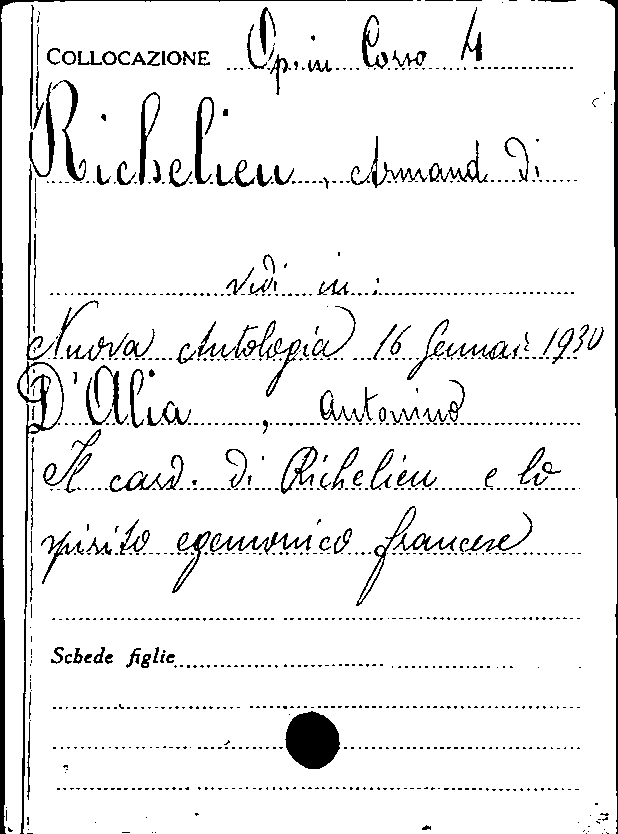 COLLOCAZIONE Op. in Corso 4
Richelieu, Armand di
vedi in :
Nuova Antologia 16 Gennai. 1930
D'Alia, Antonino
Il card. di Richelieu e lo
spirito egemonico francese
Schede figlie